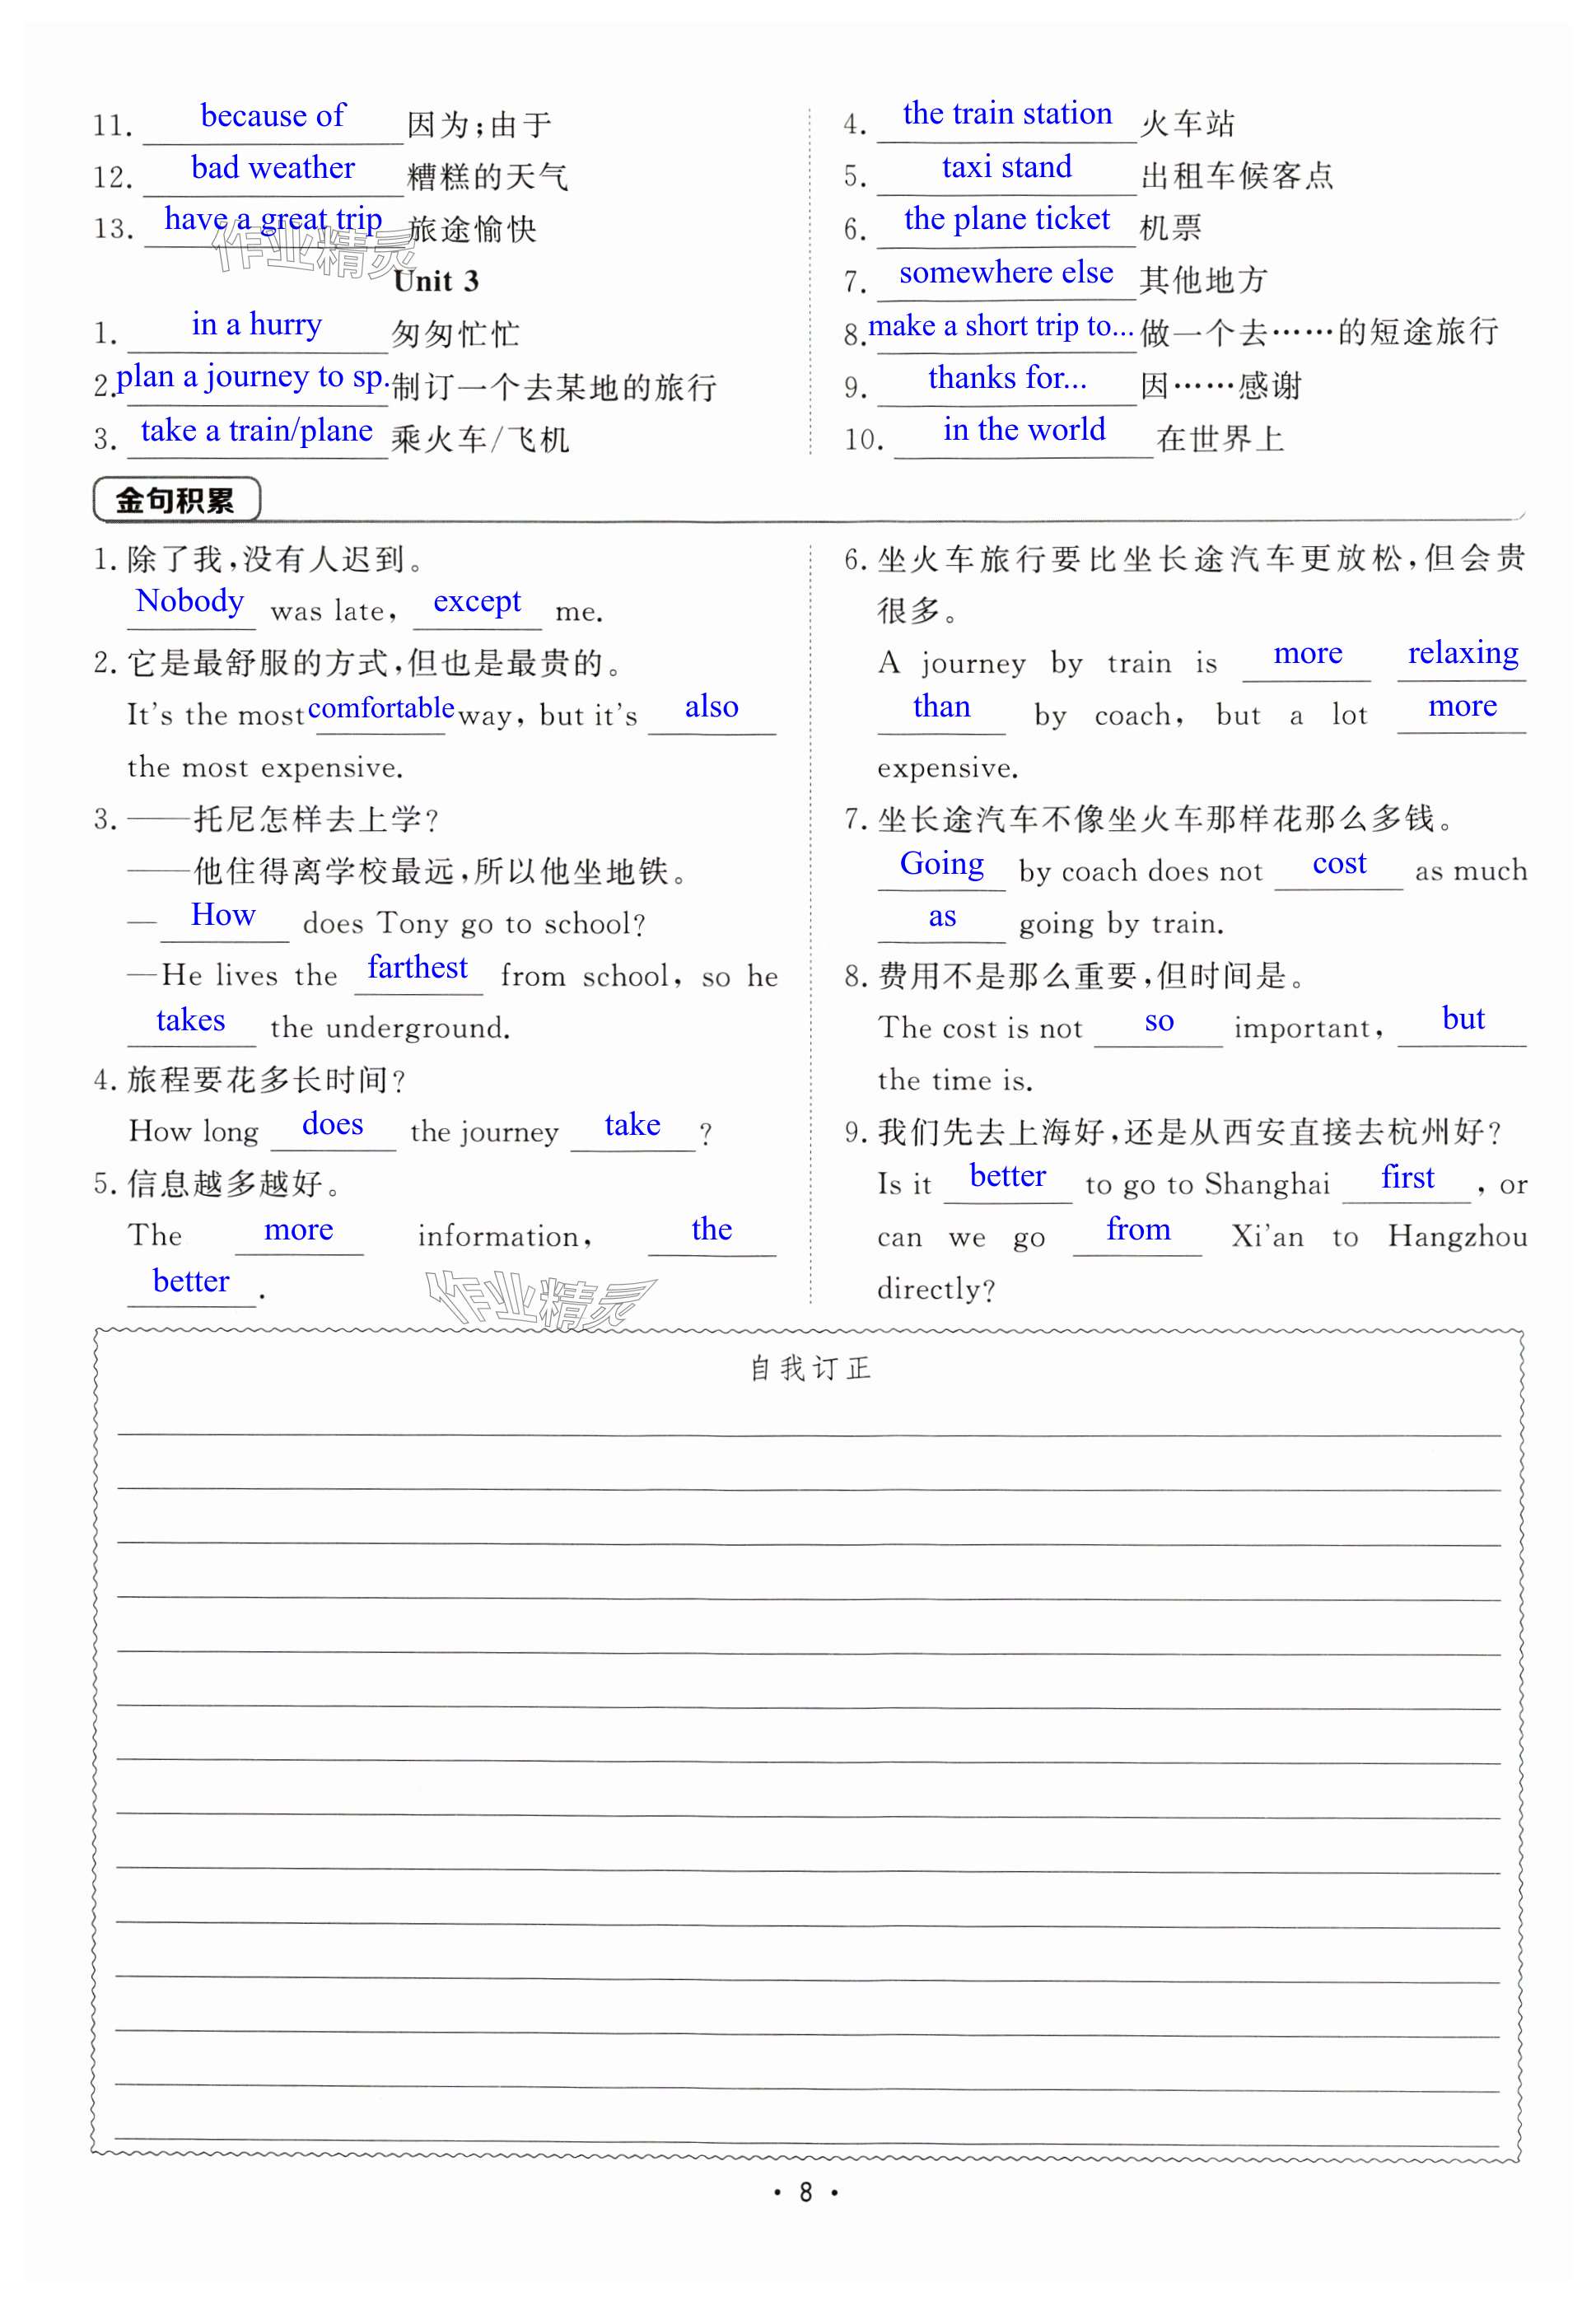 11. because of 因为;由于
12. bad weather 糟糕的天气
13. have a great trip 旅途愉快
作业精灵
Unit 3
1. in a hurry 匆匆忙忙
2. plan a journey to sp. 制订一个去某地的旅行
3. take a train/plane 乘火车/飞机
4. the train station 火车站
5. taxi stand 出租车候客点
6. the plane ticket 机票
7. somewhere else 其他地方
8. make a short trip to... 做一个去……的短途旅行
9. thanks for... 因……感谢
10. in the world 在世界上
金句积累
1. 除了我,没有人迟到。
Nobody was late, except me.
2. 它是最舒服的方式,但也是最贵的。
It's the most comfortable way, but it's also
the most expensive.
3. ——托尼怎样去上学?
——他住得离学校最远,所以他坐地铁。
— How does Tony go to school?
—He lives the farthest from school, so he
takes the underground.
4. 旅程要花多长时间?
How long does the journey take ?
5. 信息越多越好。
The more information, the
better .
作业精灵
6. 坐火车旅行要比坐长途汽车更放松,但会贵
很多。
A journey by train is more relaxing
than by coach, but a lot more
expensive.
7. 坐长途汽车不像坐火车那样花那么多钱。
Going by coach does not cost as much
as going by train.
8. 费用不是那么重要,但时间是。
The cost is not so important, but
the time is.
9. 我们先去上海好,还是从西安直接去杭州好?
Is it better to go to Shanghai first , or
can we go from Xi'an to Hangzhou
directly?
自我订正
• 8 •